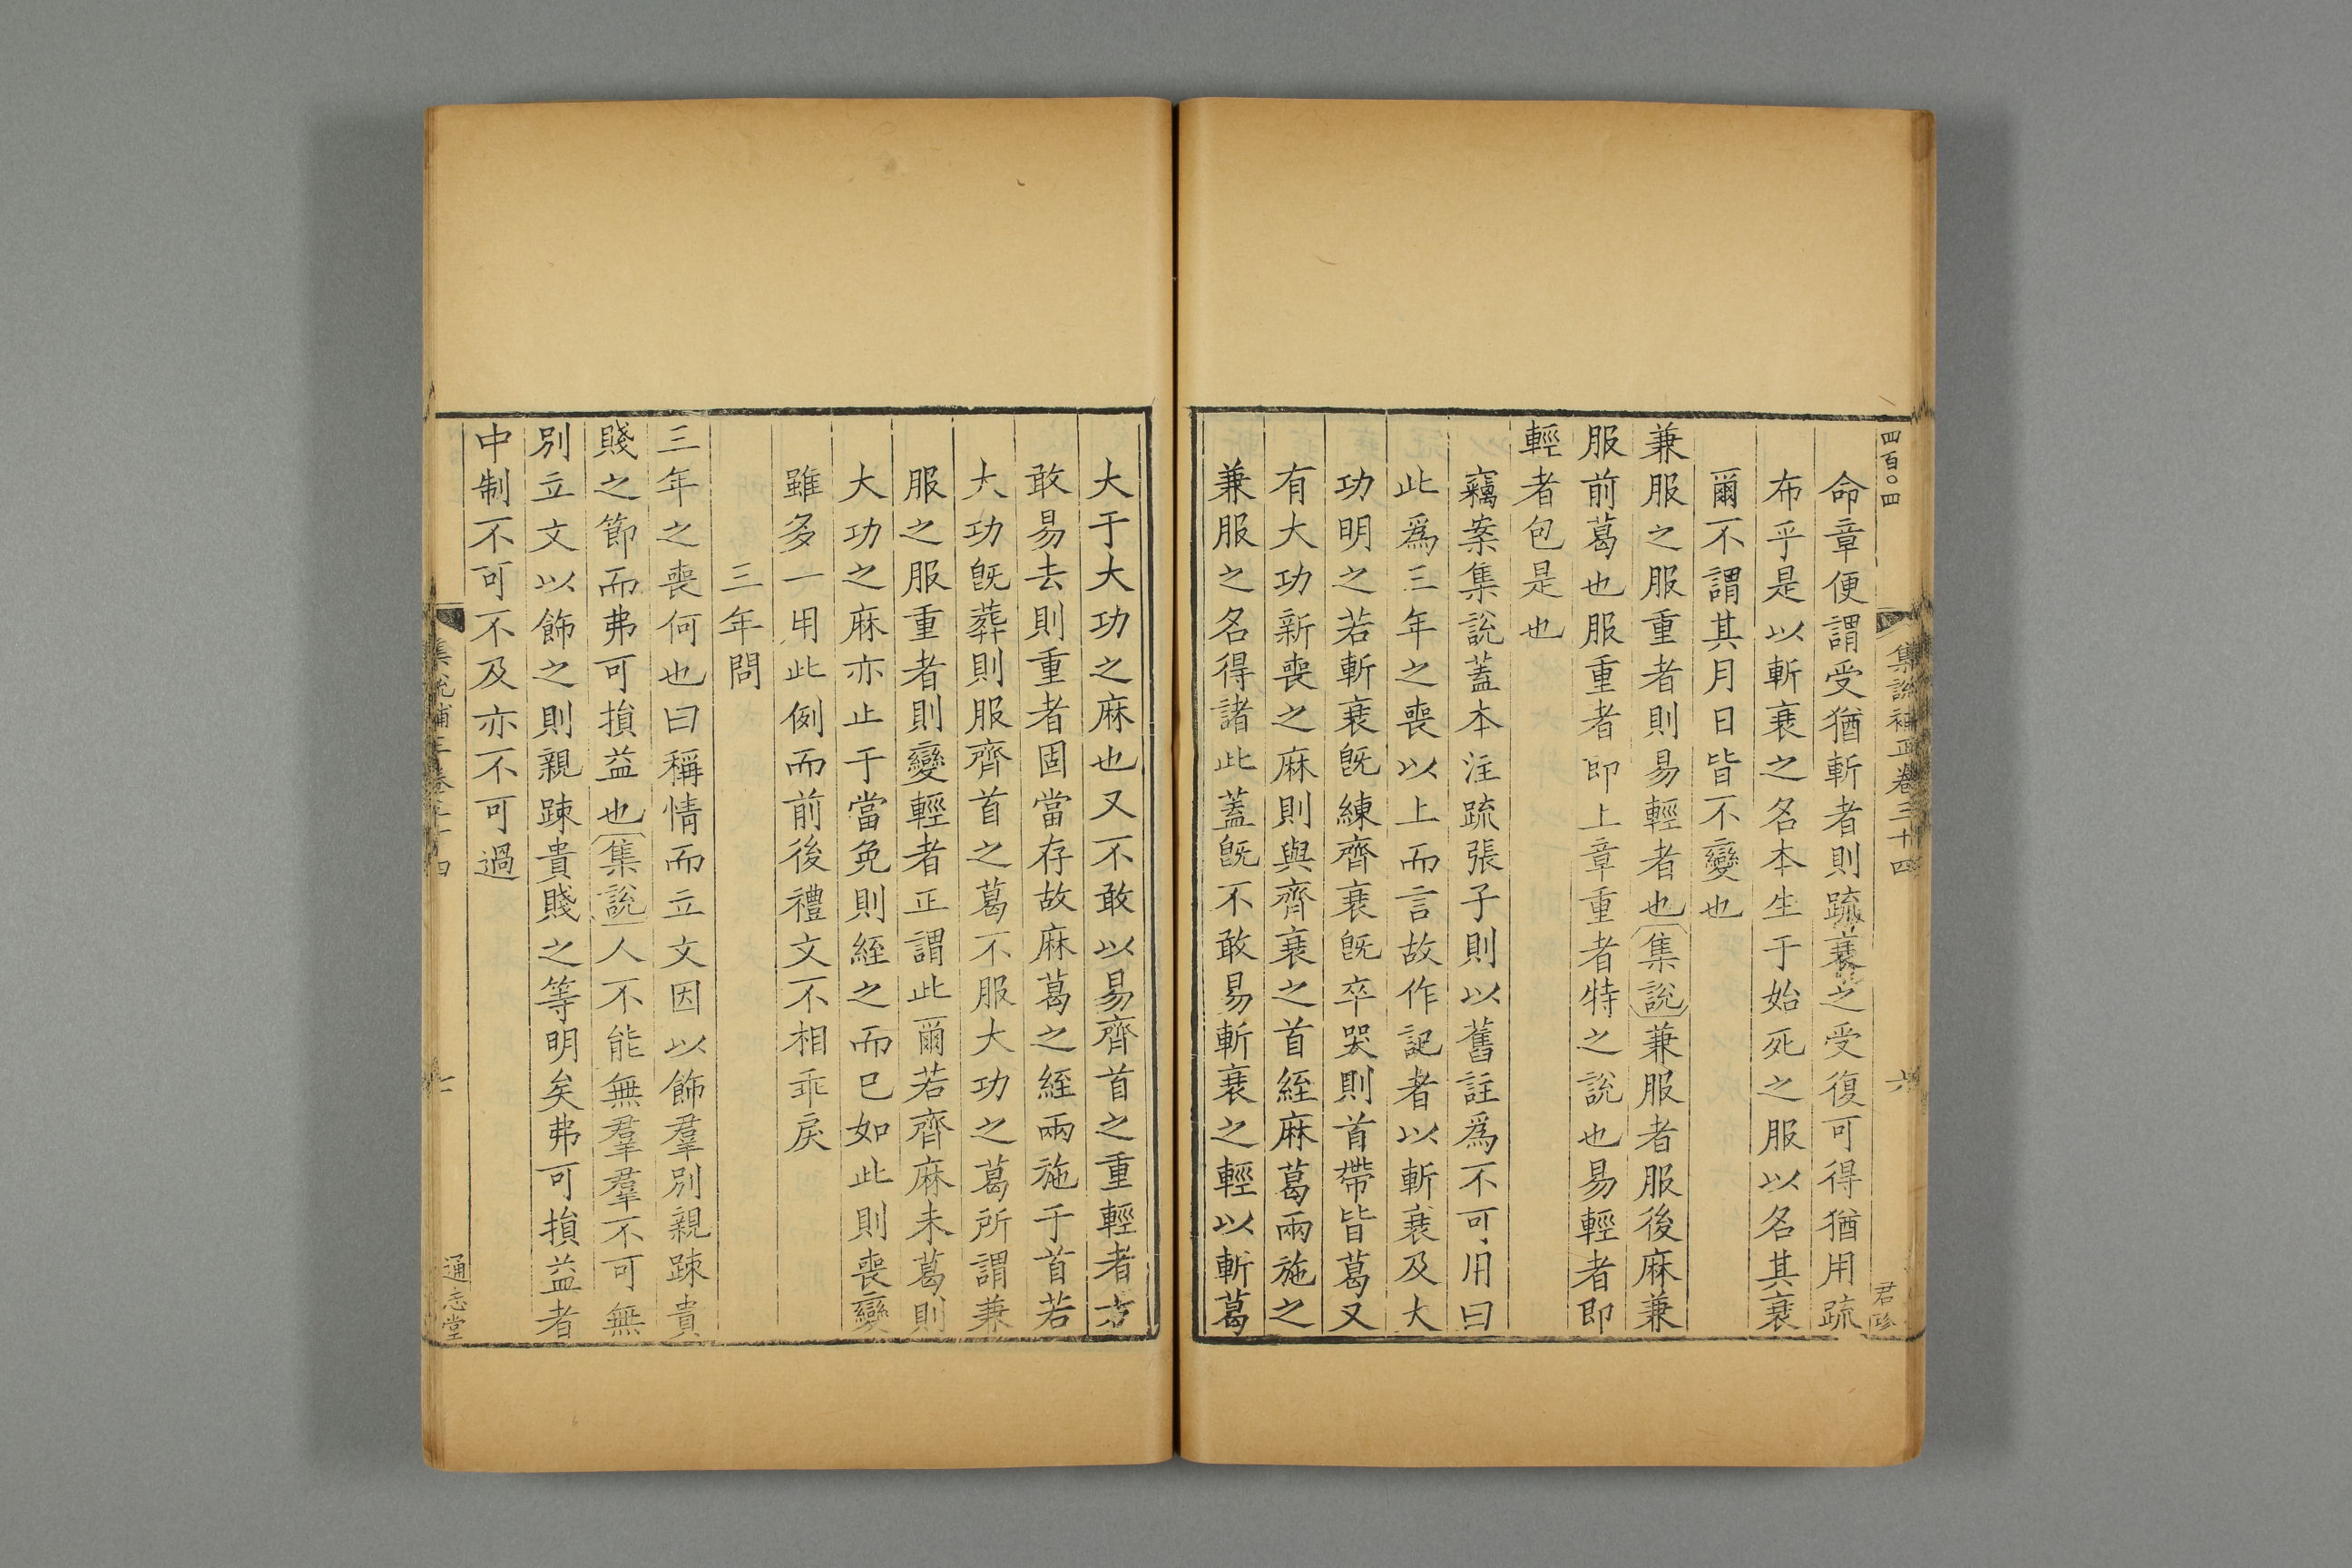 四百〇四
集說補正卷三十四
六
君珍
命章便謂受猶斬者則䟽衰之受復可得猶用䟽
布乎是以斬衰之名本生于始死之服以名其衰
爾不謂其月日皆不變也
兼服之服重者則易輕者也集說兼服者服後麻兼
服前葛也服重者即上章重者特之說也易輕者即
輕者包是也
竊案集說蓋本注䟽張子則以舊註爲不可用曰
此爲三年之喪以上而言故作記者以斬衰及大
功明之若斬衰旣練齊衰旣卒哭則首帶皆葛又
有大功新喪之麻則與齊衰之首絰麻葛兩施之
兼服之名得諸此蓋旣不敢易斬衰之輕以斬葛
大于大功之麻也又不敢以易齊首之重輕者方
敢易去則重者固當存故麻葛之絰兩施于首若
大功旣葬則服齊首之葛不服大功之葛所謂兼
服之服重者則變輕者正謂此爾若齊麻未葛則
大功之麻亦止于當免則絰之而已如此則喪變
雖多一用此例而前後禮文不相乖戾
三年問
三年之喪何也曰稱情而立文因以飾羣別親踈貴
賤之節而弗可損益也集說人不能無羣羣不可無
別立文以飾之則親踈貴賤之等明矣弗可損益者
中制不可不及亦不可過
集說補正卷三十四
七
通志堂